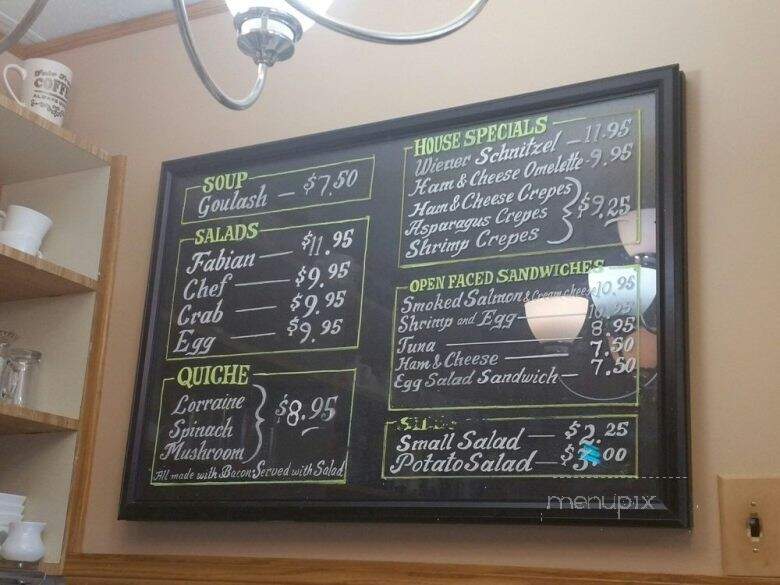 SOUP
Goulash — $7.50
SALADS
Fabian — $11.95
Chef — $9.95
Crab — $9.95
Egg — $9.95
QUICHE
Lorraine
Spinach
Mushroom
$8.95
All made with Bacon Served with Salad
HOUSE SPECIALS
Wiener Schnitzel — 11.95
Ham & Cheese Omelette - 9.95
Ham & Cheese Crepes
Asparagus Crepes
Shrimp Crepes
$9.25
OPEN FACED SANDWICHES
Smoked Salmon & Cream cheese 10.95
Shrimp and Egg —
Tuna — 8.95
Ham & Cheese — 7.50
Egg Salad Sandwich — 7.50
Small Salad — $2.25
Potato Salad — $3.00
menupix
COFFEE